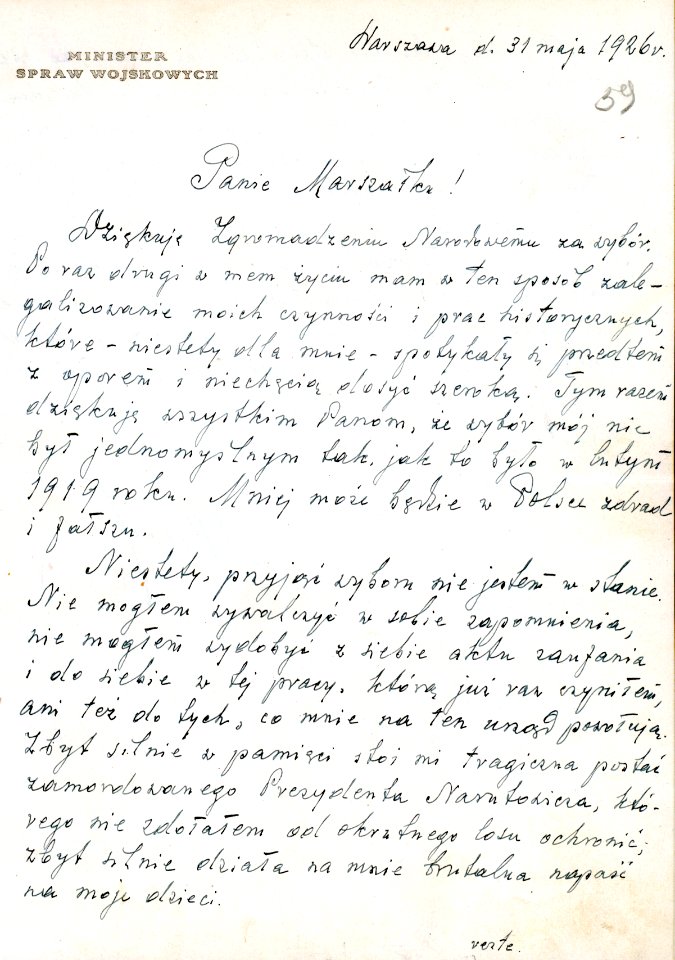 Warszawa d. 31 maja 1926 r.
MINISTER
SPRAW WOJSKOWYCH
59
Panie Marszałku!
Dziękuję Zgromadzeniu Narodowemu za wybór.
Po raz drugi w mem życiu mam w ten sposób zale-
galizowanie moich czynności i prac historycznych,
które - niestety dla mnie - spotykały się przedtem
z oporem i niechęcią dosyć szeroką. Tym razem
dziękuję wszystkim Panom, że wybór mój nie
był jednomyślnym tak, jak to było w lutym
1919 roku. Mniej może będzie w Polsce zdrad
i fałszu.
Niestety, przyjąć wyboru nie jestem w stanie.
Nie mogłem wywalczyć w sobie zapomnienia,
nie mogłem wydobyć z siebie aktu zaufania
i do siebie w tej pracy, którą już raz czyniłem,
ani też do tych, co mnie na ten urząd powołują.
Zbyt silnie w pamięci stoi mi tragiczna postać
zamordowanego Prezydenta Narutowicza, któ-
rego nie zdołałem od okrutnego losu ochronić;
zbyt silnie działa na mnie brutalna napaść
na moje dzieci.
verte.